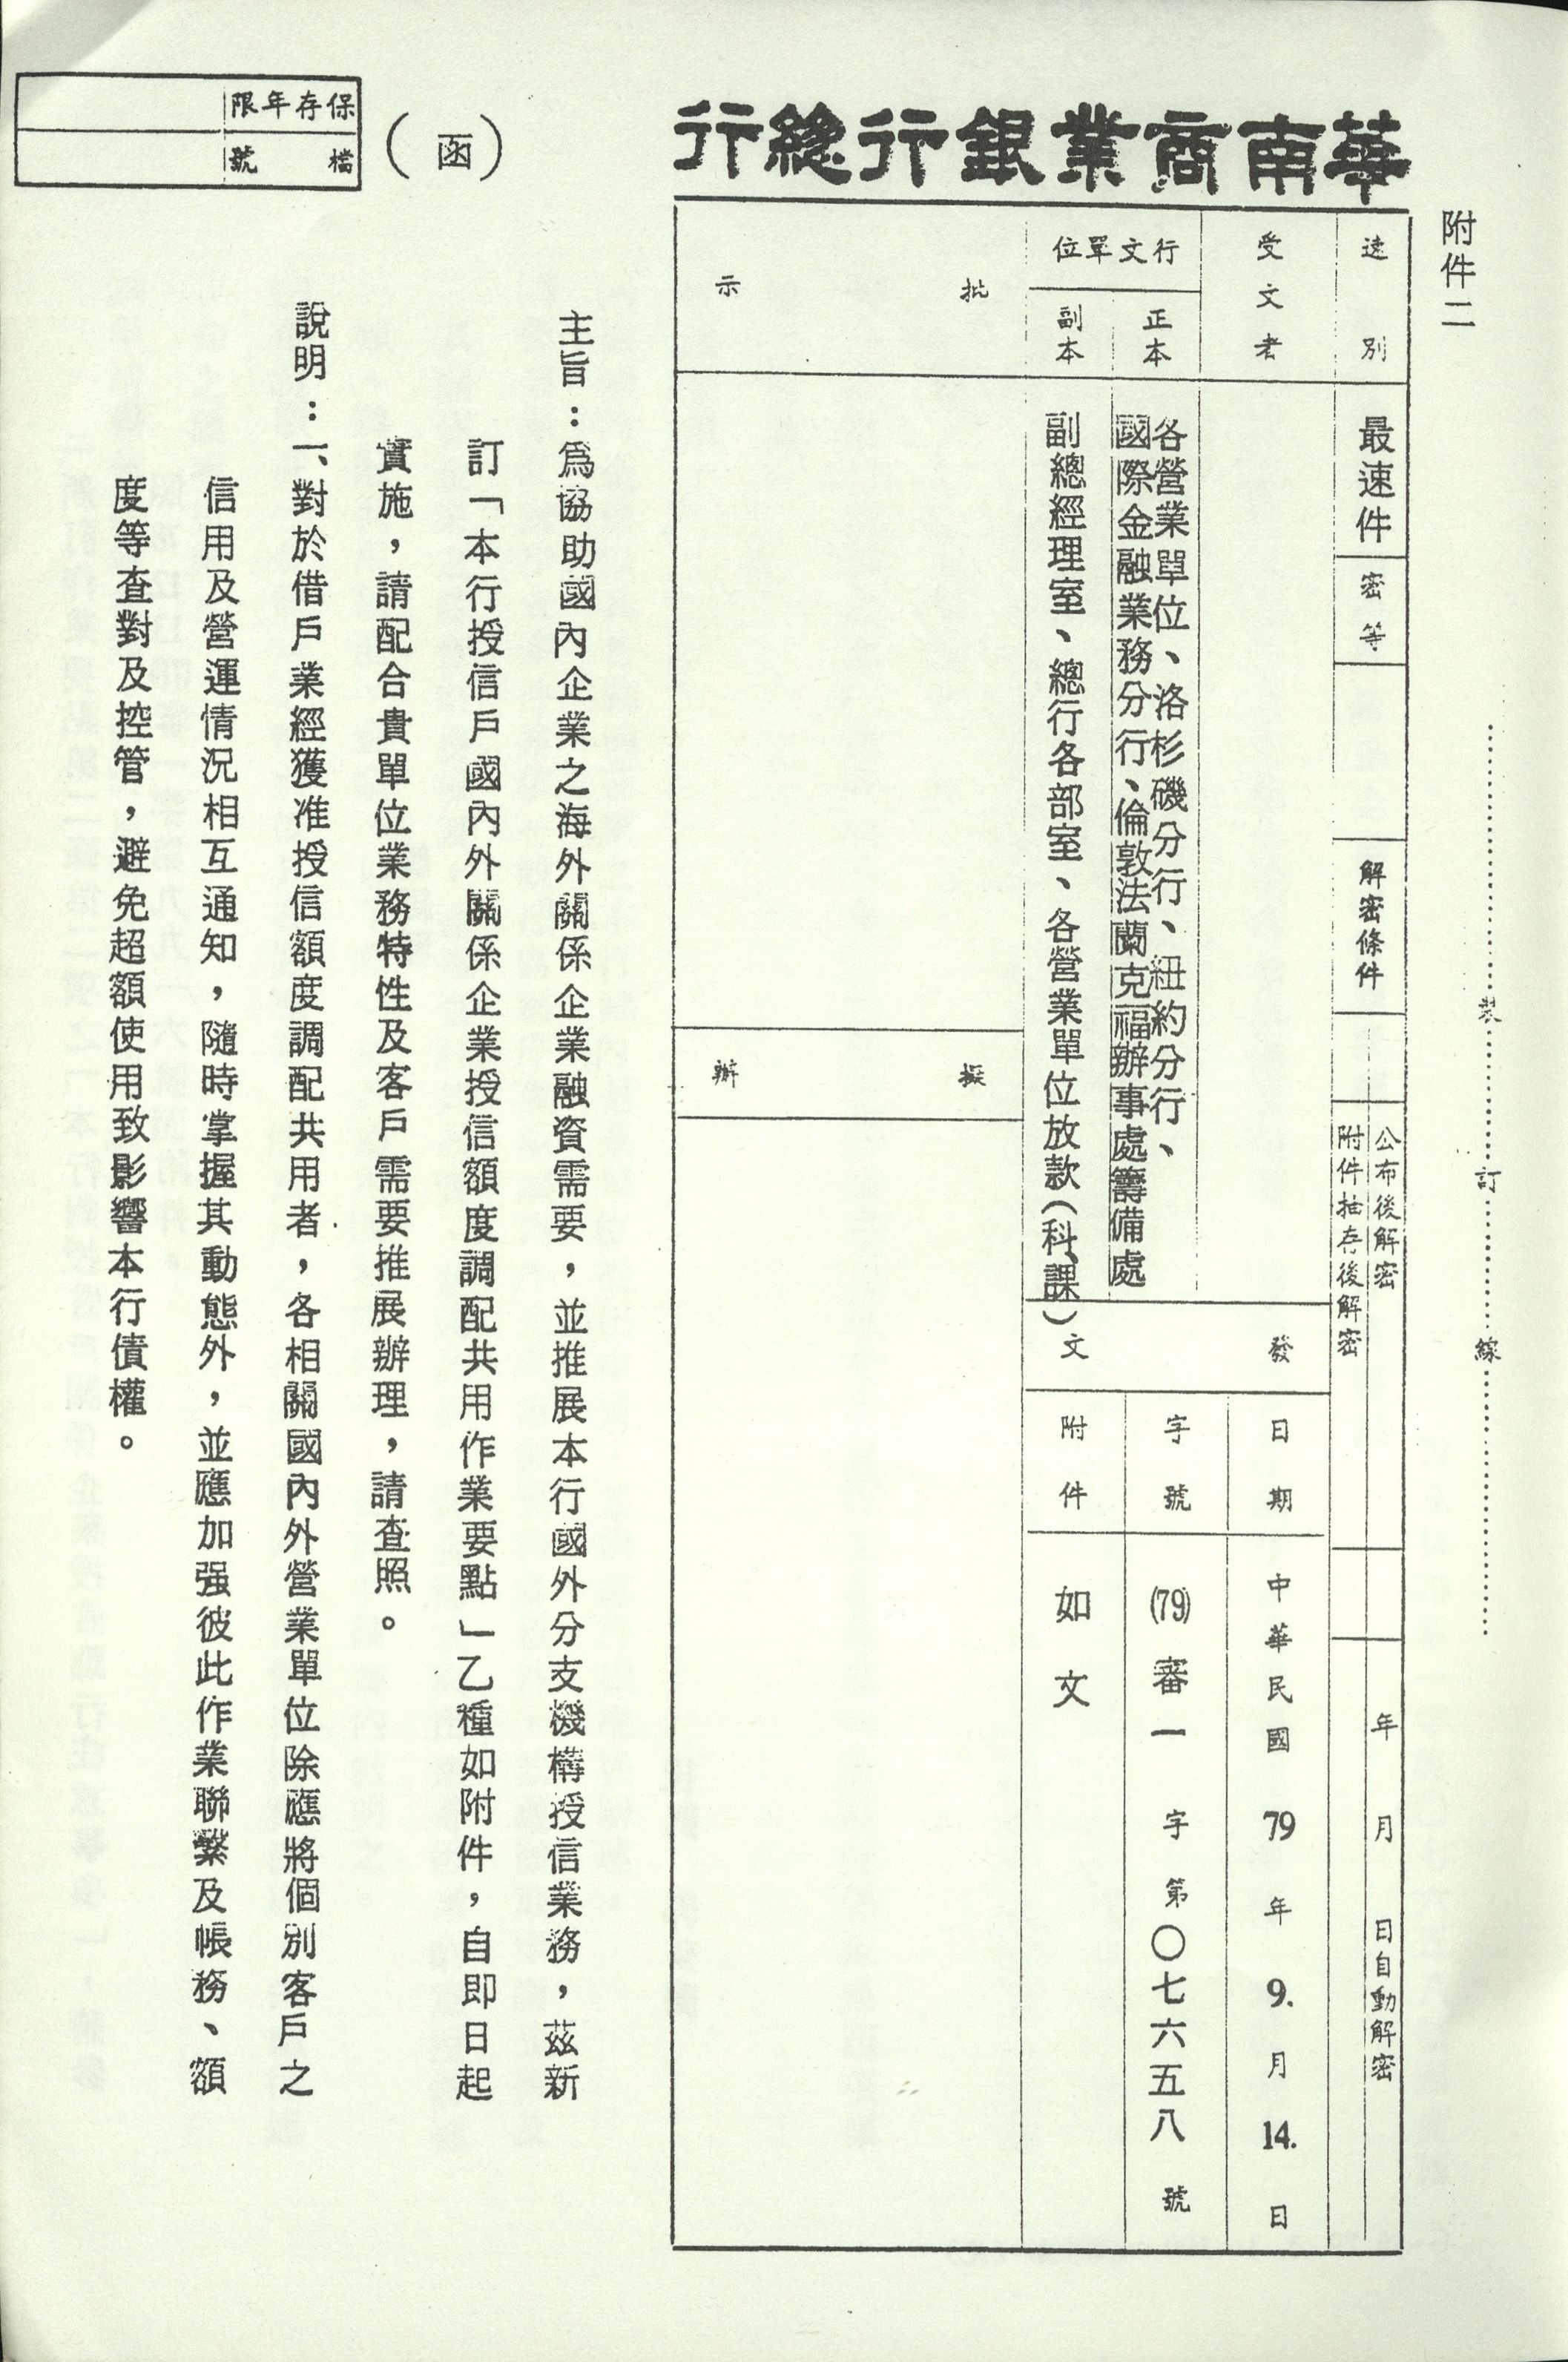 附件二
華南商業銀行總行
（函）
保存年限
檔號
速別
最速件
密等
解密條件
公布後解密
附件抽存後解密
年月日自動解密
受文者
行文單位
正本
各營業單位、洛杉磯分行、紐約分行、
國際金融業務分行、倫敦法蘭克福辦事處籌備處
副本
副總經理室、總行各部室、各營業單位放款（科、課）
發文
日期
中華民國79年9.月14.日
字號
(79)審一字第〇七六五八號
附件
如文
批示
擬辦
主旨：為協助國內企業之海外關係企業融資需要，並推展本行國外分支機構授信業務，茲新
訂「本行授信戶國內外關係企業授信額度調配共用作業要點」乙種如附件，自即日起
實施，請配合貴單位業務特性及客戶需要推展辦理，請查照。
說明：一、對於借戶業經獲准授信額度調配共用者，各相關國內外營業單位除應將個別客戶之
信用及營運情況相互通知，隨時掌握其動態外，並應加强彼此作業聯繫及帳務、額
度等查對及控管，避免超額使用致影響本行債權。
裝訂線